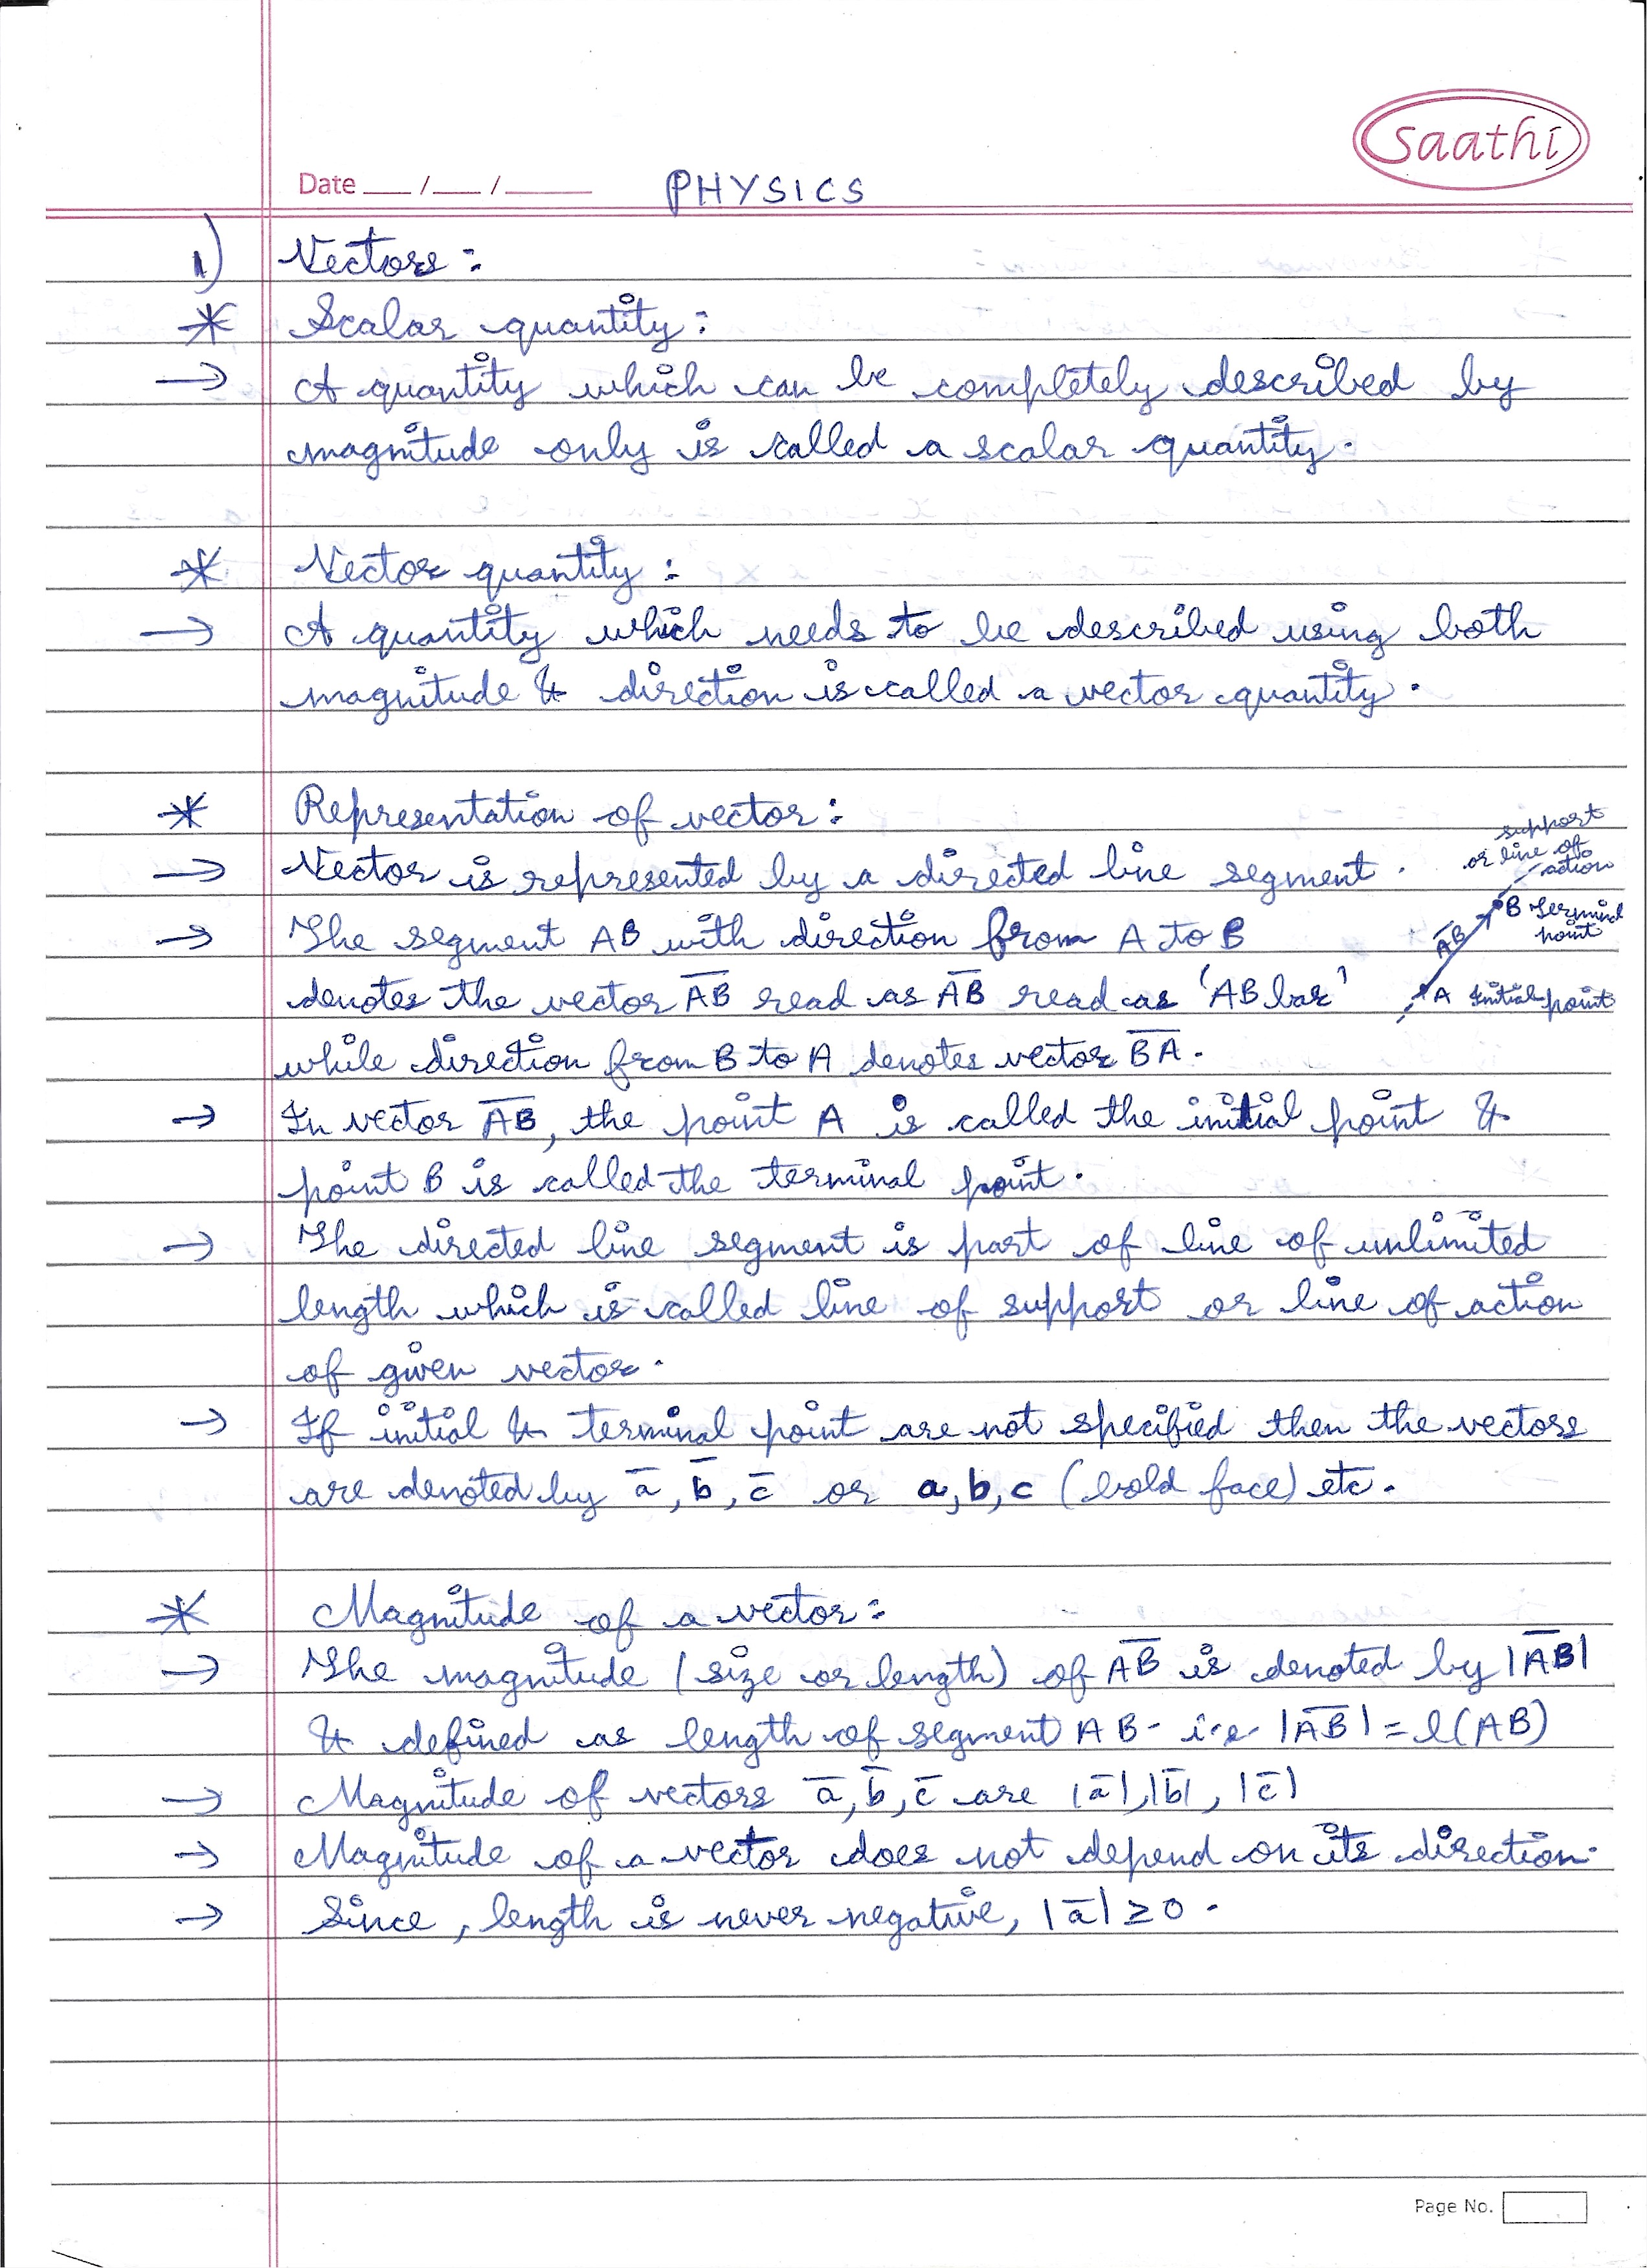 saathi
Date ___/___/_____ PHYSICS
1) Vectors:
* Scalar quantity:
→ A quantity which can be completely described by
magnitude only is called a scalar quantity.
* Vector quantity:
→ A quantity which needs to be described using both
magnitude & direction is called a vector quantity.
* Representation of vector:
→ Vector is represented by a directed line segment.
support
or line of
action
→ The segment AB with direction from A to B
B Terminal
point
A̅B̅
denotes the vector A̅B̅ read as A̅B̅ read as 'AB bar'
A Initial point
while direction from B to A denotes vector B̅A̅.
→ In vector A̅B̅, the point A is called the initial point &
point B is called the terminal point.
→ The directed line segment is part of line of unlimited
length which is called line of support or line of action
of given vector.
→ If initial & terminal point are not specified then the vectors
are denoted by a̅, b̅, c̅ or a, b, c (bold face) etc.
* Magnitude of a vector:
→ The magnitude (size or length) of A̅B̅ is denoted by |A̅B̅|
& defined as length of segment AB - i.e. |A̅B̅| = l(AB)
→ Magnitude of vectors a̅, b̅, c̅ are |a̅|, |b̅|, |c̅|
→ Magnitude of a vector does not depend on its direction.
→ Since, length is never negative, |a̅| ≥ 0.
Page No.